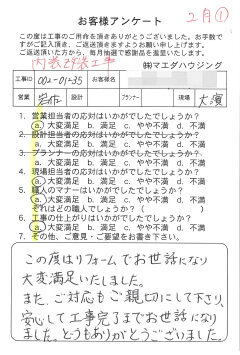 2月①
お客様アンケート
この度は工事のご用命を頂きありがとうございました。お手数で
すがご記入頂き、ご返送頂きますようお願い申し上げます。
ご返送頂いた方から、毎月抽選で感謝品を進呈いたします。
内装改装工事
㈱マエダハウジング
工事ID 002-01-35 お客様名
営業 設計 プランナー 現場 大濱
1. 営業担当の応対はいかがでしたでしょうか?
a. 大変満足 b. 満足 c. やや不満 d. 不満
2. 設計担当の応対はいかがでしたでしょうか?
a. 大変満足 b. 満足 c. やや不満 d. 不満
3. プランナーの応対はいかがでしたでしょうか?
a. 大変満足 b. 満足 c. やや不満 d. 不満
4. 現場担当者の応対はいかがでしたでしょうか?
a. 大変満足 b. 満足 c. やや不満 d. 不満
5. 職人のマナーはいかがでしたでしょうか?
a. 大変満足 b. 満足 c. やや不満 d. 不満
それはどの職人でしょうか? (
6. 工事の仕上がりはいかがでしたでしょうか?
a. 大変満足 b. 満足 c. やや不満 d. 不満
7. その他、ご意見・ご要望をお書き下さい。
この度はリフォームでお世話になり
大変満足いたしました。
また、ご対応もご親切にして下さり、
安心して工事完了までお世話になり
ました。どうもありがとうございました。